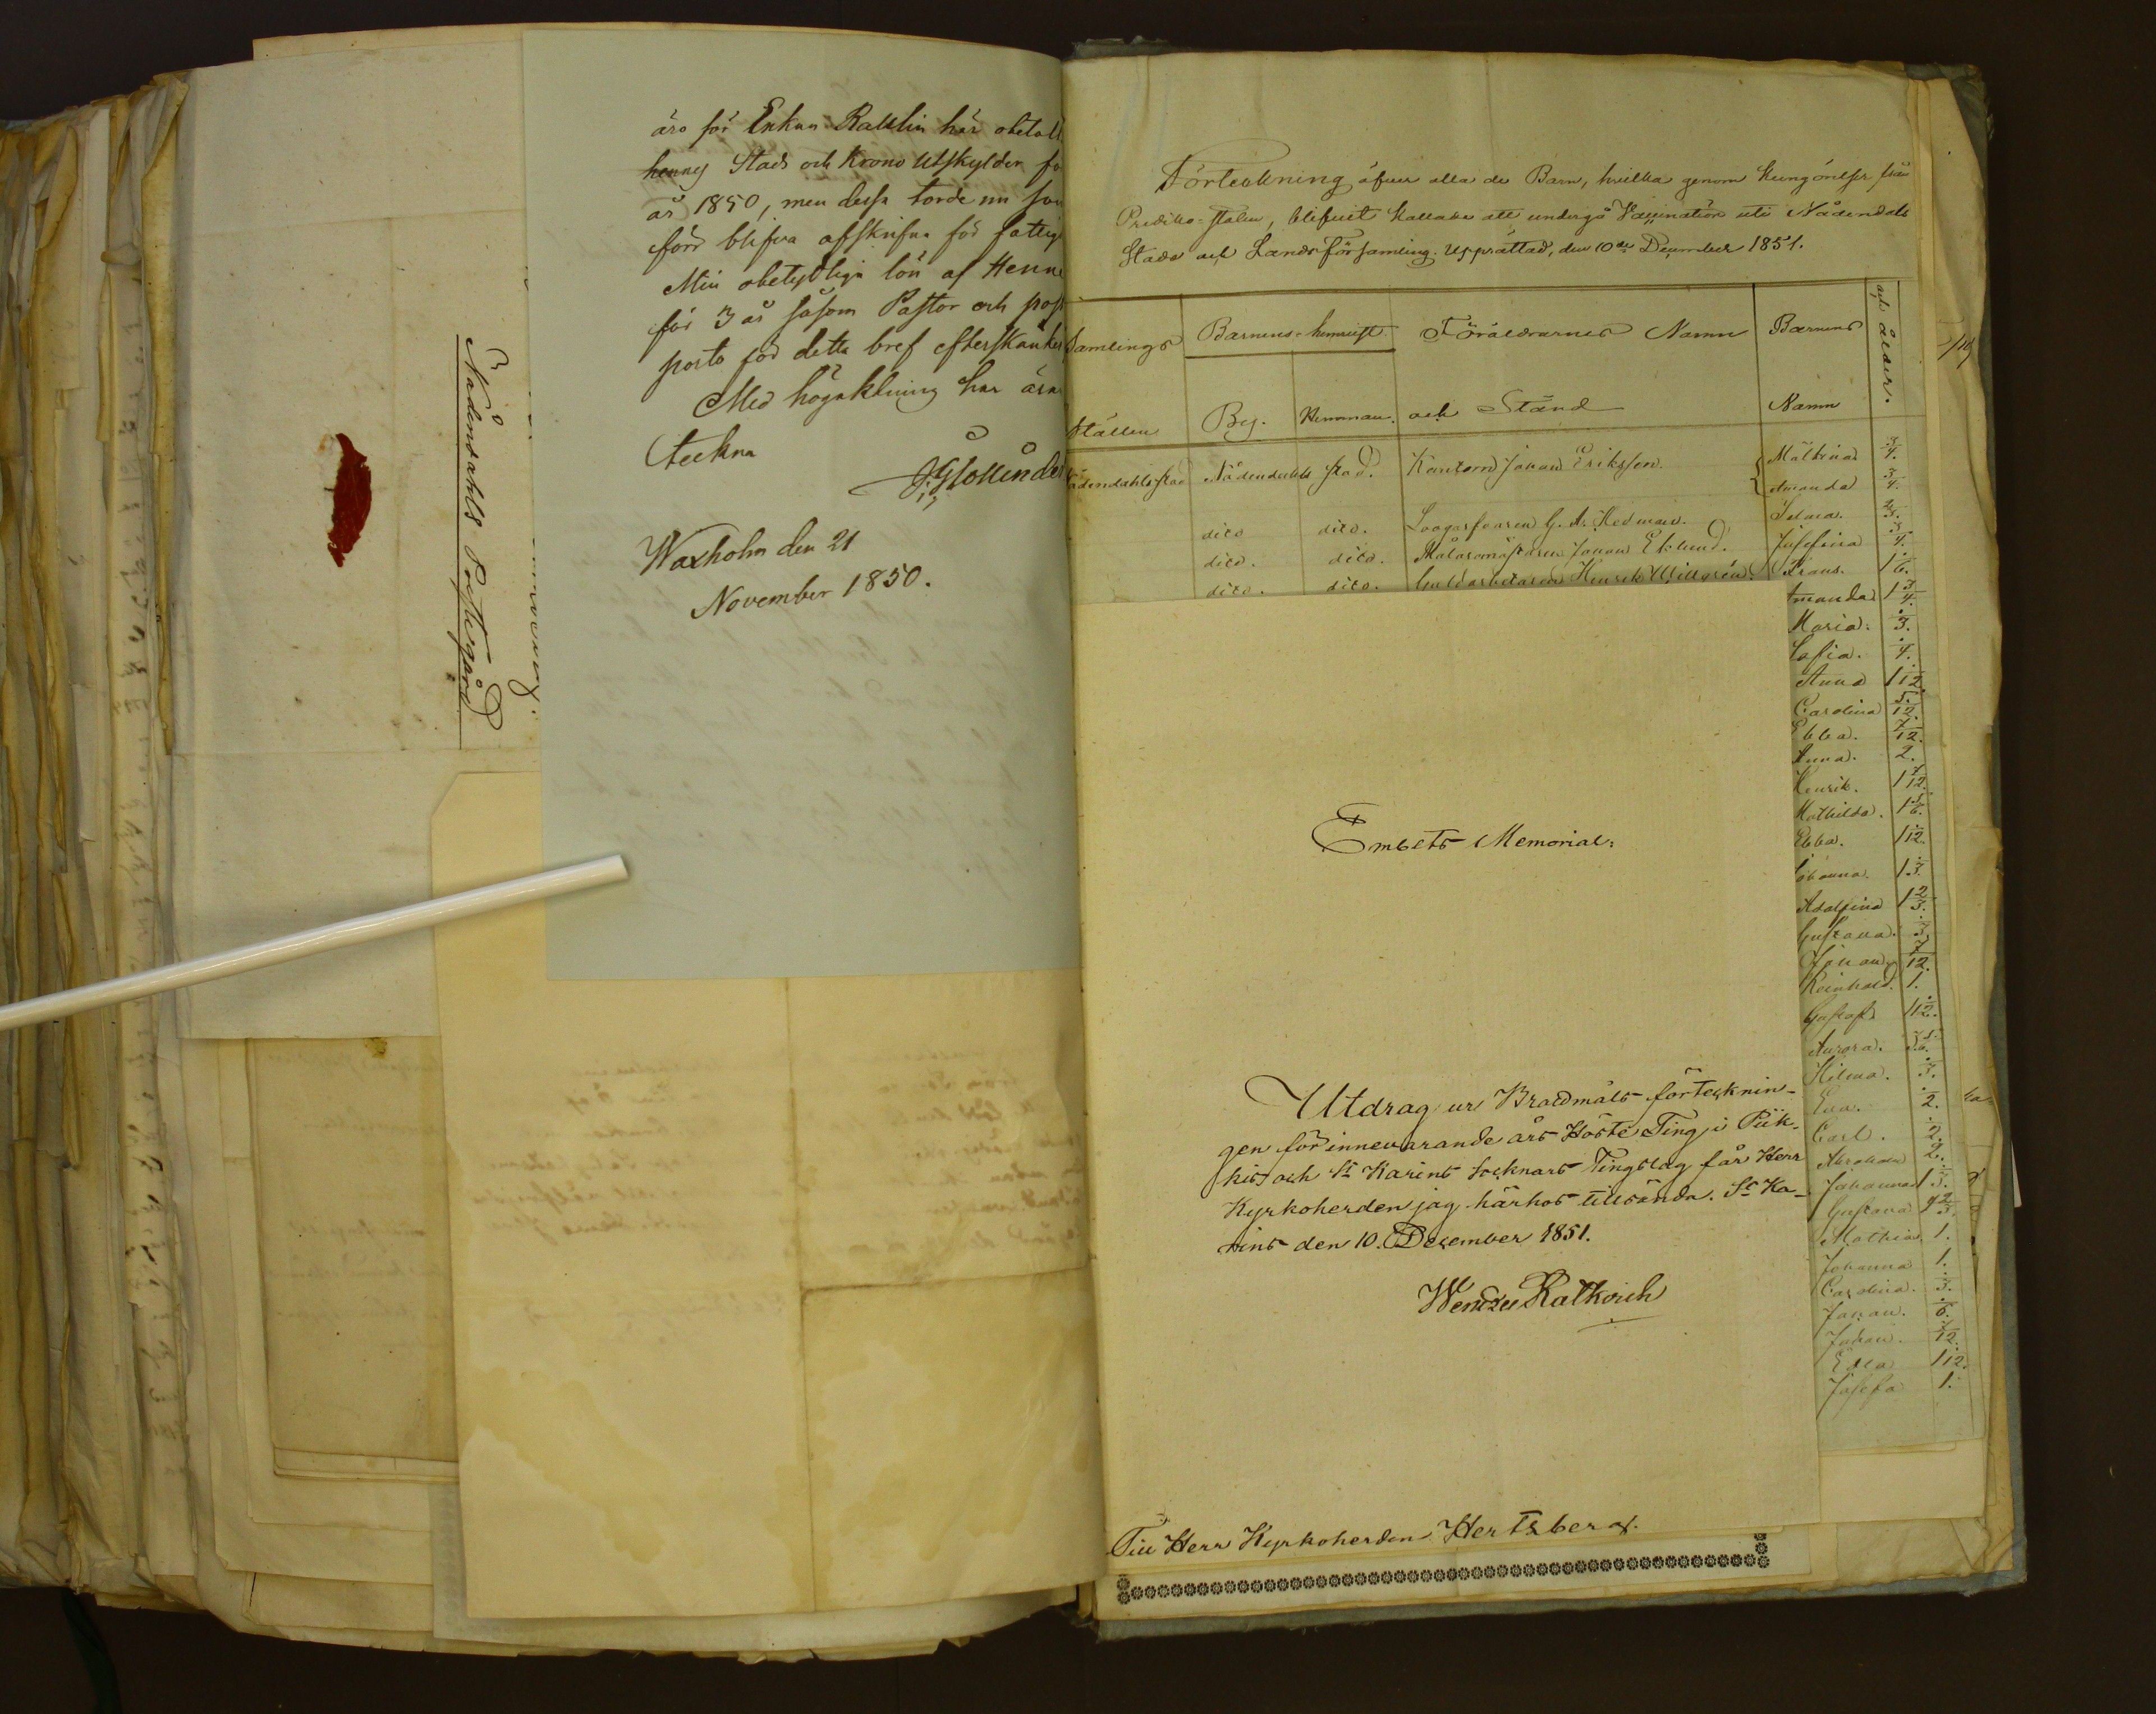 äro för Enkan Rallin här obetalt
hennes Stads och Krono Utskylder
år 1850, men dessa torde nu
förr blifva afskrifna för fattig
Min obetydliga lön af Henne
för 3 år såsom Pastor och post
porto för detta bref efterskänker
Med högaktning har äran
teckna
Waxholm den 21
November 1850.
Nådendahls Prestegård
Förteckning öfver alla de Barn, hvilka genom kungörelser från
Prediko-stolen, blifvit kallade att undergå Vaccination uti Nådendals
Stads och Landsförsamling. Upprättad, den 10de December 1851.
samlings
Barnens hemvist
Föräldrarnes Namn
Barnens
och ålder.
Ställen
By.
Hemman.
och Stånd
Namn
Nådendahls stad Nådendahls stad. Kantorn Johan Eriksson. Malvina 3/4.
Amanda 3/4.
dito dito. G. A. Hedman. Selma.
dito. dito. Målaremästaren Johan Eklund. Josefina
dito. dito. Guldarbetaren Henrik Willgrén. Frans. 1 1/6.
Amanda 1 3/4.
Maria.
Sofia.
Anna
Carolina 5/12.
Ebba. 7/12.
Anna. 2.
Henrik. 1 7/12.
Mathilda.
Ebba. 1 1/12.
Johanna. 1 1/3.
Adolfina 1 2/3.
Gustava.
Johan 7/12.
Reinhold. 1.
Gustaf
Aurora.
Hilma.
Eva.
Carl.
Abraham
Johanna
Gustava
Mathias 1.
Johanna 1.
Carolina.
Johan.
Johan.
Edla
Josefa 1.
Embets Memorial:
Utdrag ur Brodmåls-förtecknin-
gen för innevarande års Höste Ting i Piik-
kis och St Karins Socknars Tingslag får Herr
Kyrkoherden jag härhos tillsända. St Ka-
rins den 10. December 1851.
Wenzel Ratkovich
Till Herr Kyrkoherden Hertzberg.